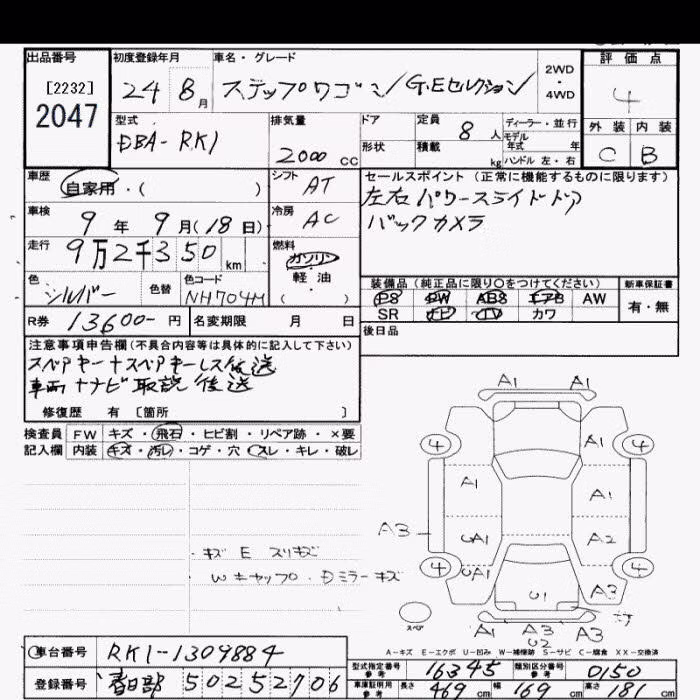 出品番号 初度登録年月 車名・グレード 評価点
[2232] 24 8月 ステップワゴン/G.Eセレクション 2WD・4WD 4
2047
型式 排気量 ドア 定員 8人 ディーラー・並行 外装 内装
DBA-RK1 2000cc 形状 積載 kg モデル年式 年 C B
ハンドル 左・右
車歴 シフト セールスポイント (正常に機能するものに限ります)
自家用・( ) AT 左右パワースライドドア
車検 冷房 バックカメラ
9年 9月(18日) AC
走行 燃料
9万2千350km ガソリン・軽油・( )
色 色替 色コード 装備品 (純正品に限り〇をつけてください) 新車保証書
シルバー NH704M PS PW ABS エアB AW 有・無
SR ナビ TV カワ
R券 13600-円 名変期限 月 日 後日品
注意事項申告欄(不具合内容等は具体的に記入して下さい)
スペアキー+スペアキーレス後送
車両+ナビ取説後送
修復歴 有 [箇所 ]
検査員 FW キズ・飛石・ヒビ割・リペア跡・×要
記入欄 内装 キズ・汚レ・コゲ・穴・スレ・キレ・破レ
A1 A1
4 A1 4
A1 A1
A3 UA1 A2
4 UA1 4
U1 A3
A1 A3 A1
U2
スペア
・キズ E スリキズ
Wキャップ・Dミラーキズ
A-キズ E-エクボ U-凹み W-補修跡 S-サビ C-腐食 XX-交換済
車台番号 RK1-1309884
登録番号 春日部 502 5 2706
型式指定番号 参考 16345 類別区分番号 参考 0150
車庫証明用 参考 長さ 469cm 幅 169cm 高さ 181cm